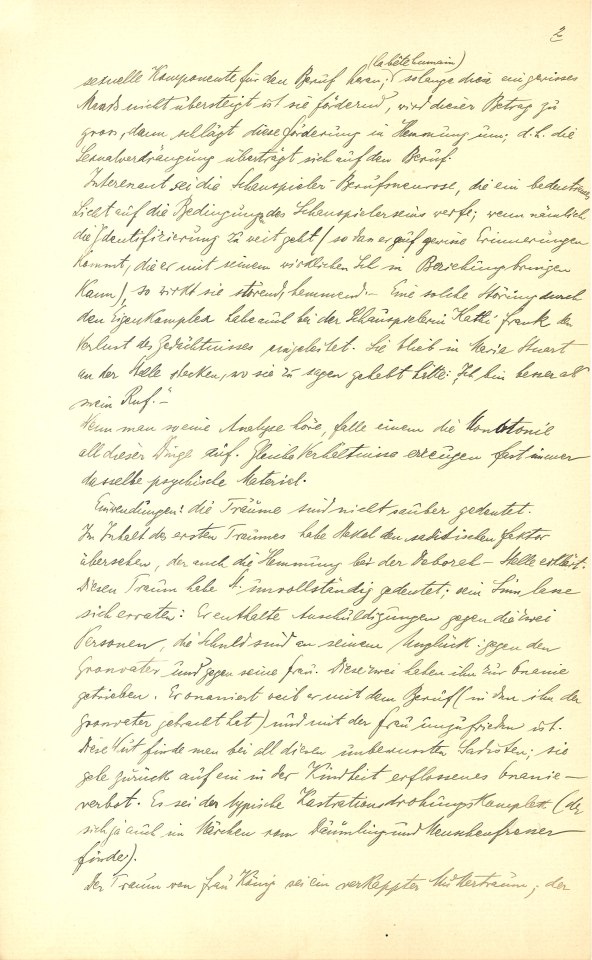 2
(la bête humain)
sexuelle Komponente für den Beruf kann; solange diese ein gewisses
Mass nicht übersteigt ist sie fördernd, wird dieser Betrag zu
gross, dann schlägt diese Förderung in Hemmung um; d.h. die
Sexualverdrängung überträgt sich auf den Beruf.
Interessant sei die Schauspieler-Berufsneurose, die ein bedeutsames
Licht auf die Bedingungen des Schauspielerseins werfe; wenn nämlich
die Identifizierung zu weit geht (so dass er auf gewisse Erinnerungen
kommt, die er mit seinem wirklichen Ich in Beziehung bringen
kann), so wirkt sie störend, hemmend. – Eine solche Störung durch
den Eigenkomplex habe auch bei der Schauspielerin Kathi Frank den
Verlust des Gedächtnisses eingeleitet. Sie blieb in Maria Stuart
an der Stelle stecken, wo sie zu sagen gehabt hätte: „Ich bin besser als
mein Ruf." –
Wenn man so eine Analyse höre, falle einem die Monotonie
all dieser Dinge auf. Gleiche Verhältnisse erzeugen fast immer
dasselbe psychische Material.
Einwendungen: die Träume sind nicht sauber gedeutet.
Im Inhalt des ersten Traumes habe Stekel den sadistischen Faktor
übersehen, der auch die Hemmung bei der Deborah-Stelle erklärt.
Diesen Traum habe St. unvollständig gedeutet; sein Sinn lasse
sich erraten: Er enthalte Anschuldigungen gegen die zwei
Personen, die Schuld sind an seinem Unglück: gegen den
Grossvater und gegen seine Frau. Diese zwei haben ihn zur Onanie
getrieben. Er onaniert weil er mit dem Beruf (in den ihn der
Grossvater gebracht hat) und mit der Frau unzufrieden ist.
Diese Wut finde man bei all diesen unbewussten Sadisten; sie
gehe zurück auf ein in der Kindheit erflossenes Onanie-
verbot. Es sei der typische Kastrationsdrohungskomplex (der
sich ja auch im Märchen vom Däumling und Menschenfresser
finde).
Der Traum von Frau König sei ein verkappter Muttertraum; der